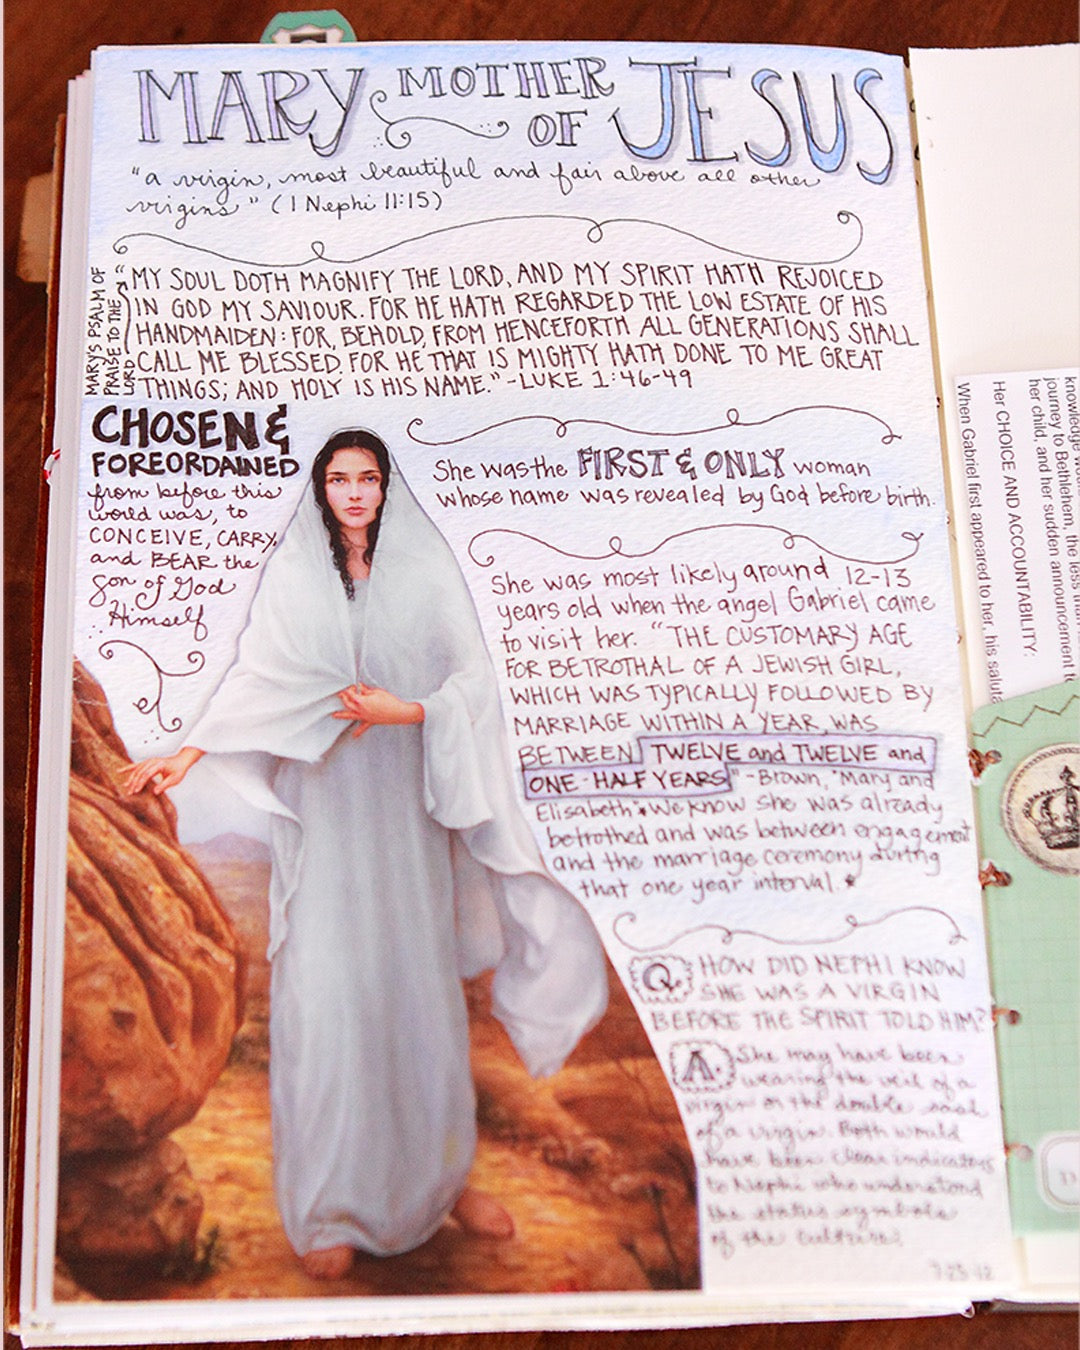 MARY MOTHER OF JESUS
"a virgin, most beautiful and fair above all other
virgins" (1 Nephi 11:15)
MARY'S PSALM OF
PRAISE TO THE
LORD
"MY SOUL DOTH MAGNIFY THE LORD, AND MY SPIRIT HATH REJOICED
IN GOD MY SAVIOUR. FOR HE HATH REGARDED THE LOW ESTATE OF HIS
HANDMAIDEN: FOR, BEHOLD, FROM HENCEFORTH ALL GENERATIONS SHALL
CALL ME BLESSED. FOR HE THAT IS MIGHTY HATH DONE TO ME GREAT
THINGS; AND HOLY IS HIS NAME." -LUKE 1:46-49
CHOSEN &
FOREORDAINED
from before this
world was, to
CONCEIVE, CARRY,
and BEAR the
Son of God
Himself
She was the FIRST & ONLY woman
whose name was revealed by God before birth.
She was most likely around 12-13
years old when the angel Gabriel came
to visit her. "THE CUSTOMARY AGE
FOR BETROTHAL OF A JEWISH GIRL,
WHICH WAS TYPICALLY FOLLOWED BY
MARRIAGE WITHIN A YEAR, WAS
BETWEEN TWELVE and TWELVE and
ONE-HALF YEARS" -Brown, "Mary and
Elisabeth" * We know she was already
betrothed and was between engagement
and the marriage ceremony during
that one year interval. *
Q. HOW DID NEPHI KNOW
SHE WAS A VIRGIN
BEFORE THE SPIRIT TOLD HIM?
A. She may have been
wearing the veil of a
virgin or the double sash
of a virgin. Both would
have been clear indicators
to Nephi who understood
the status symbols
of the culture.
7-23-12
knowledge
journey to Bethlehem, the less than
her child, and her sudden announcement t
Her CHOICE AND ACCOUNTABILITY:
When Gabriel first appeared to her, his saluta
D